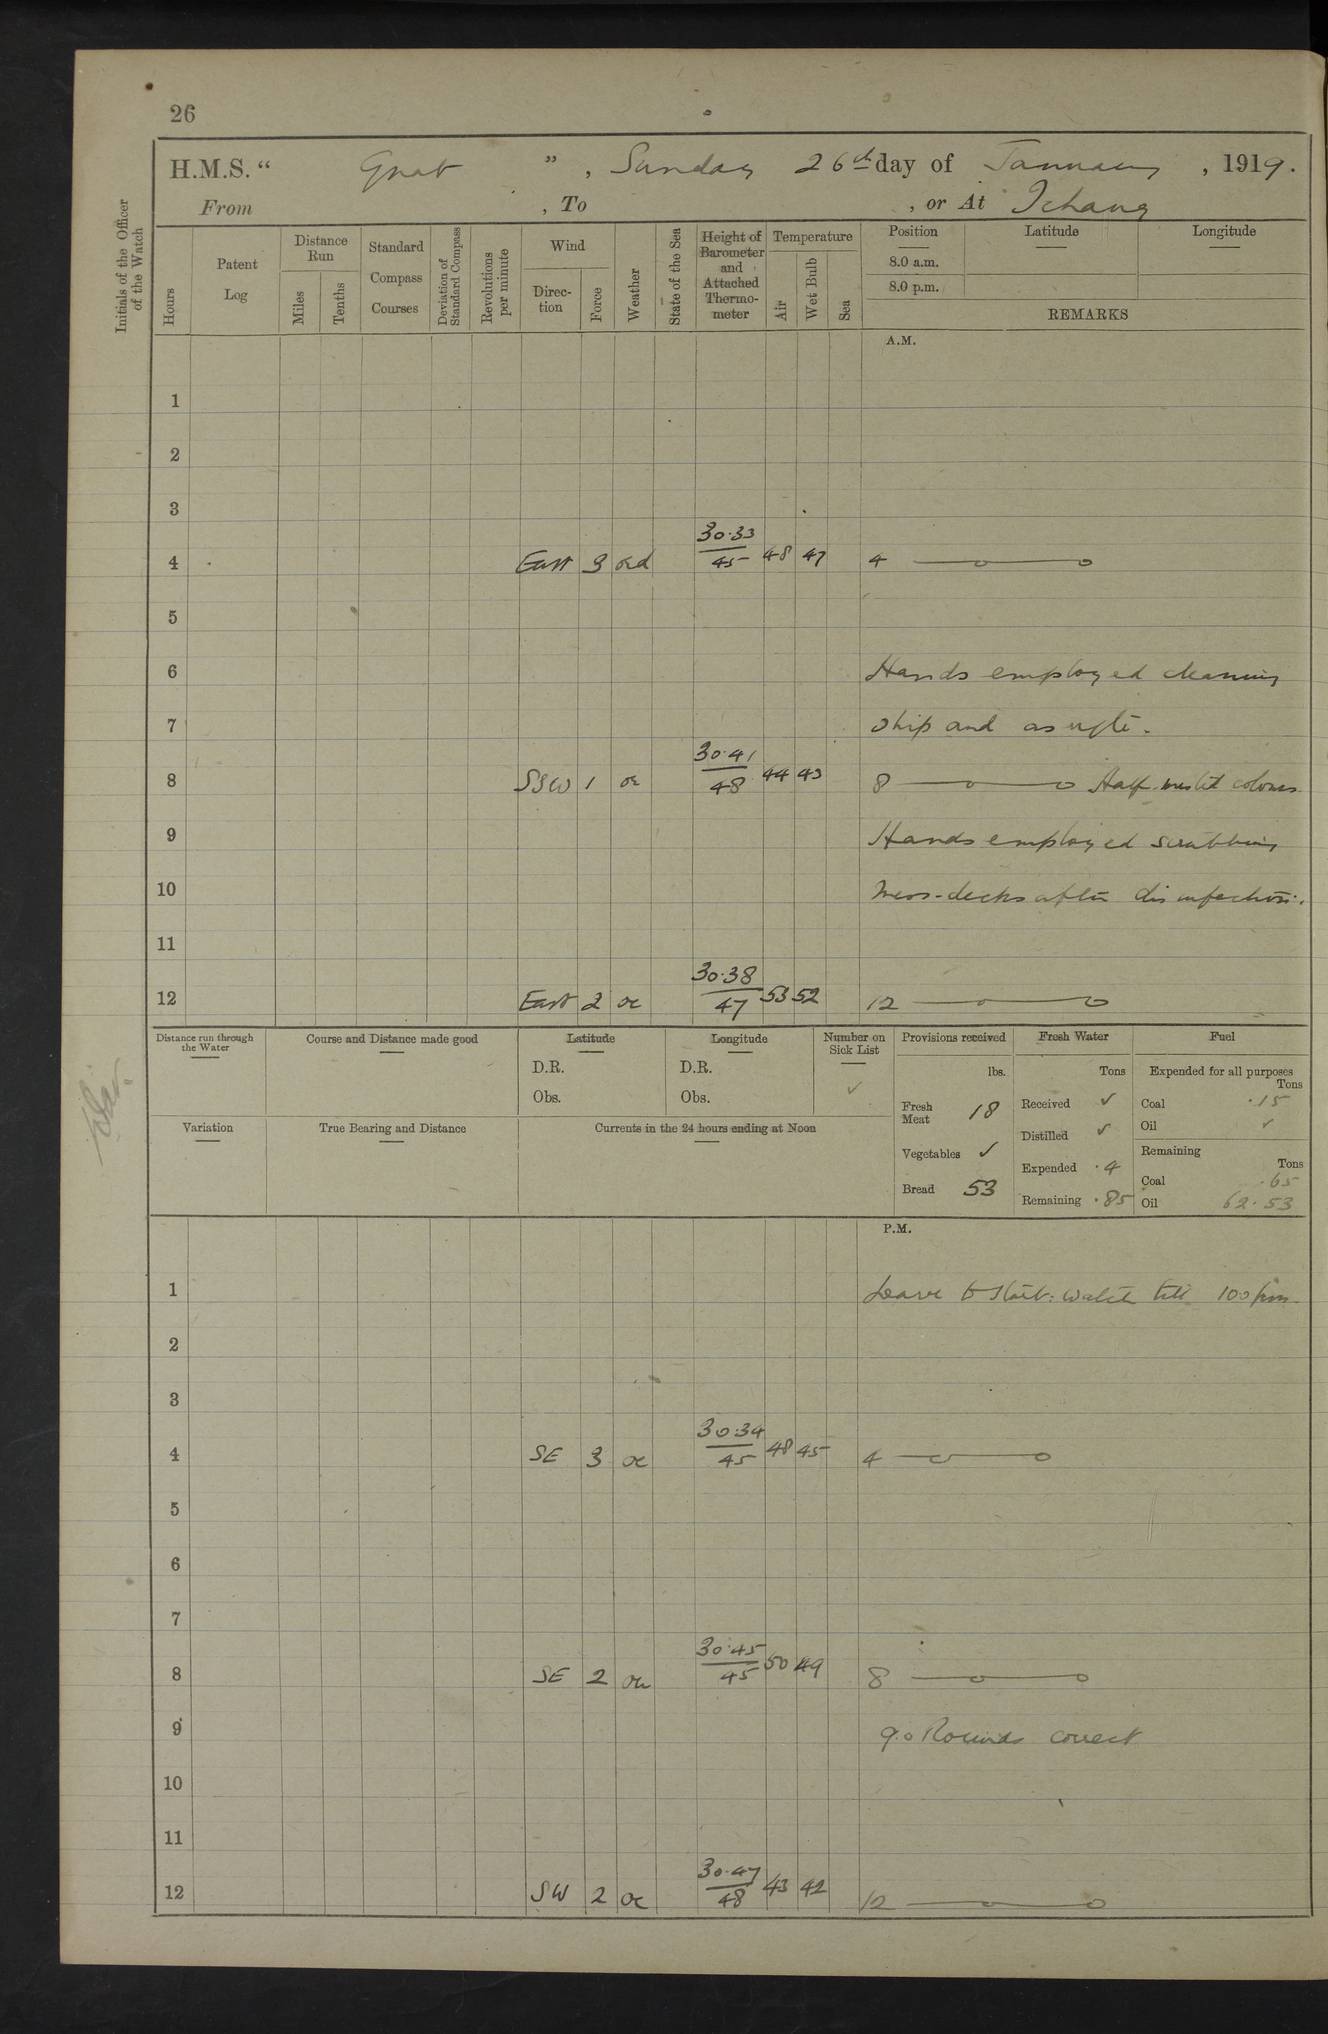 26
H.M.S. “ Gnat ”, Sunday 26th day of January, 1919.
From , To , or At Ichang
Initials of the Officer of the Watch
Hours
Patent Log
Distance Run
Miles
Tenths
Standard Compass Courses
Deviation of Standard Compass
Revolutions per minute
Wind
Direction
Force
Weather
State of the Sea
Height of Barometer and Attached Thermometer
Temperature
Air
Wet Bulb
Sea
Position Latitude Longitude
8.0 a.m.
8.0 p.m.
REMARKS
A.M.
1
2
3
4 East 3 od 30.33 / 45 48 47 4
5
6 Hands employed cleaning
7 ship and as reqte.
8 SSW 1 oc 30.41 / 48 44 43 8 Half-masted colours
9 Hands employed scrubbing
10 Mess-decks after disinfection.
11
12 East 2 oc 30.38 / 47 53 52 12
Distance run through the Water
Course and Distance made good
Latitude
D.R.
Obs.
Longitude
D.R.
Obs.
Number on Sick List
✓
Provisions received
lbs.
Fresh Meat 18
Vegetables ✓
Bread 53
Fresh Water
Tons
Received ✓
Distilled ✓
Expended .4
Remaining .85
Fuel
Expended for all purposes
Tons
Coal .15
Oil ✓
Remaining
Tons
Coal .65
Oil 62.53
Variation
True Bearing and Distance
Currents in the 24 hours ending at Noon
P.M.
1 Leave to Starb: watch till 10 0 pm
2
3
4 SE 3 oc 30.34 / 45 48 45 4
5
6
7
8 SE 2 oc 30.45 / 45 50 49 8
9 9.0 Rounds correct
10
11
12 SW 2 oc 30.47 / 48 43 42 12